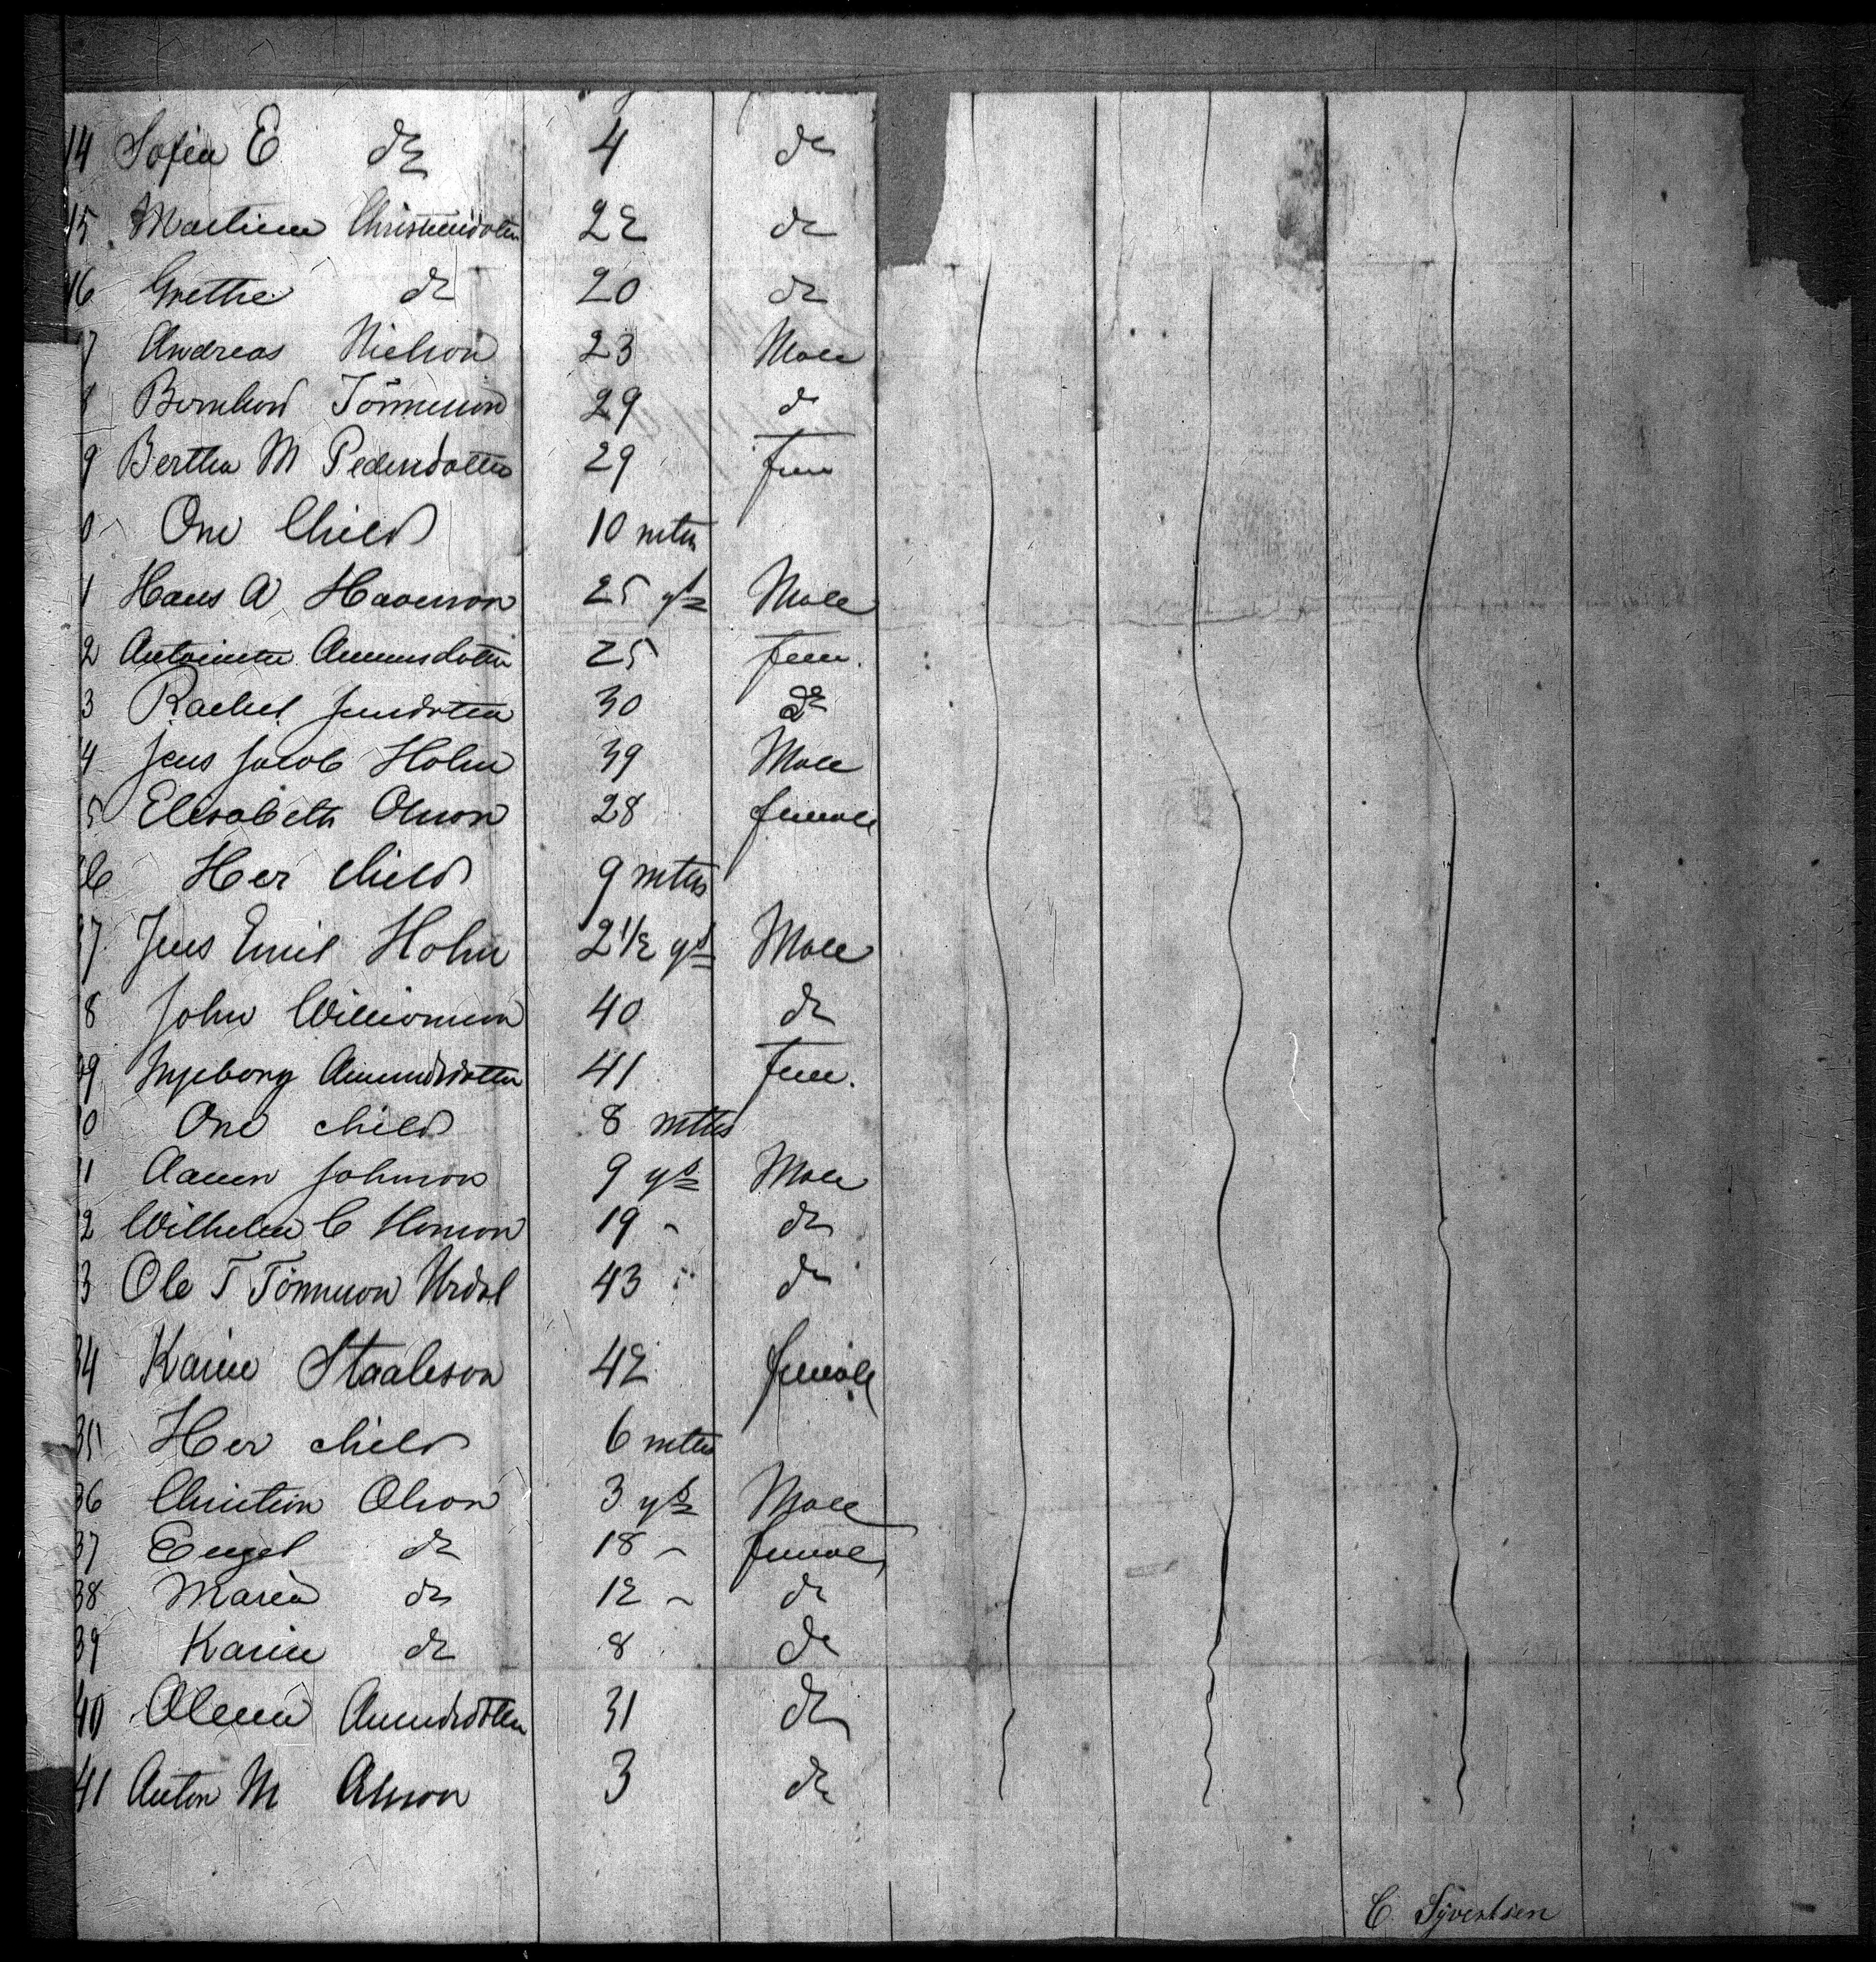 14 Sofie E do 4 do
15 Martine Christensdotter 22 do
16 Grethe do 20 do
7 Andreas Nielson 23 Male
8 Bernhard Tönneson 29 do
9 Bertha M Pedersdotter 29 fem
0 One Child 10 mths
1 Hans A Haaverson 25 yrs Male
2 Antoinette 25 fem.
3 Rachel Jensdotter 30 do
4 Jens Jacob Holm 39 Male
5 Elisabeth Olsson 28 female
26 Her child 9 mths
27 Jens Emil Holm 2 1/2 yrs Male
8 John Williamson 40 do
29 Ingeborg Amundsdotter 41 fem.
0 One child 8 mths
1 Johnson 9 yrs Male
2 Wilhelm C Hanson 19 - do
3 Ole T Tönneson Urdal 43 " do
34 Karine Staaleson 42 female
35 Her child 6 mths
36 Christian Olson 3 yrs Male
37 Engel do 18 - female
38 Maria do 12 - do
39 Karine do 8 do
40 Olena Amundsdotter 31 do
41 Anton M 3 do
C. Syvertsen